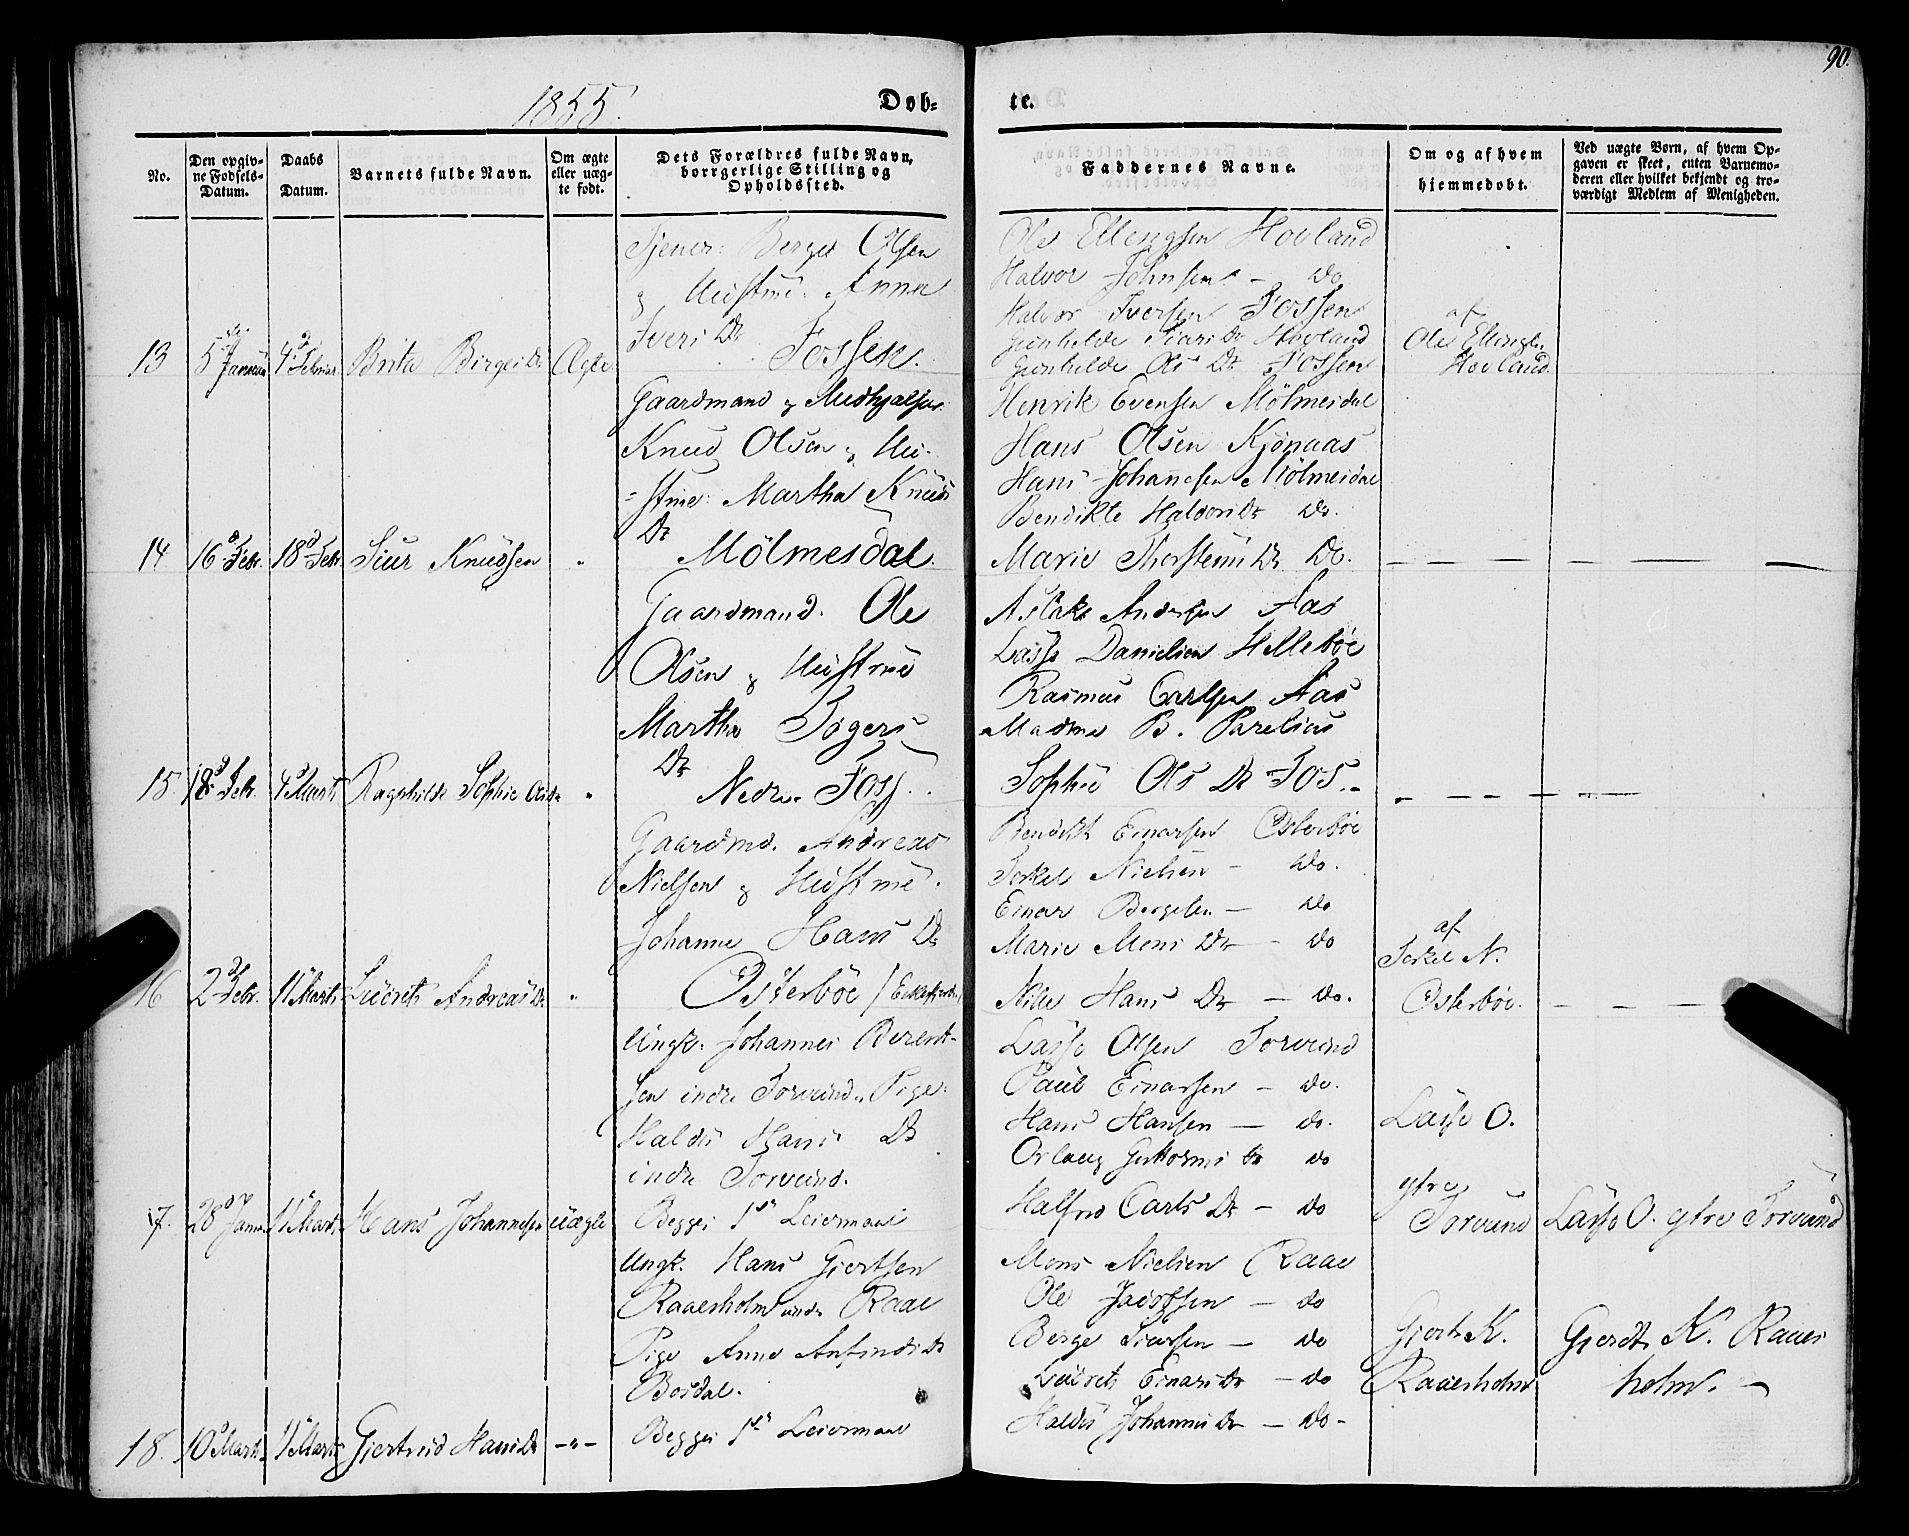 90.
1855.
Døb- te.
No.
Den opgiv-
ne Fødsels-
Datum.
Daabs
Datum.
Barnets fulde Navn.
Om ægte
eller uæg-
te født.
Dets Forældres fulde Navn,
borgerlige Stilling og
Opholdssted.
Faddernes Navne.
Om og af hvem
hjemmedøbt.
Ved uægte Børn, af hvem Op-
gaven er skeet, enten Barnemo-
deren eller hvilket bekjendt og tro-
værdigt Medlem af Menigheden.
13
5 Januar
4d Februar
Brita Birges Dr
Ægte
Tjener: Berge Olsen
& Hustrue: Anna
Ivers Dr
Fossen.
Ole Ellingsen Hovland
Halvor Johnsen - Do
Halvor Iversen Fossen
Gunhilde Hovland
Gunhilde Ols Dr Fossen
af
Ole Ellingsen
Hovland
14
16d Febr.
18d Febr.
Siur Knudsen
"
Gaardmand &
Knud Olsen & Hu-
-strue: Martha Knuds
Dr
Mølmesdal
Henrik Evensen Mølmesdal
Hans Olsen Kjønaas
Hans Johannesen Mølmesdal
Bendikte Halvors Dr Do.
Marie Thorsteins Dr Do.
15
18d Febr.
4d Marts
Ragnhilde Sophie Olsdr
"
Gaardmand. Ole
Olsen & Hustrue
Martha Tøgers
Dr
Nedre Foss.
Aslak Andersen Aas
Lasse Danielsen Hellebøe
Rasmus Carlsen Aas
Madme B. Parelius
Sophie Ols Dr Fos.
16
2d Febr.
11 Marts
Andreas Dr
"
Gaardmd. Andreas
Nielsen & Hustrue.
Johanne Hans Dr
Østerbøe
Bendikt Einarsen Østerbøe
Torkel Nielsen - Do.
Einar Bergesen - Do
Marie Mons Dr - Do
Hans Dr - Do.
af
Torkel N.
Østerbøe.
17.
28d Januar
11 Marts
Hans Johannesen
uægte
Ungk. Johannes Berent-
sen indre Torvund & Pige:
Haldis Hans Dr
indre Torvund.
Begges 1ste Leiermaal
Lasse Olsen Torvund
Paul Einarsen - Do.
Hans Hansen - do.
Guttorms Dr do
Carls Dr - do
Lasse O.
ytre
Torvund
Lasse O. ytre Torvund
18.
10d Marts.
11 Marts
Giertrud Hans Dr
- " -
Ungk. Hans Giertsen
Raaesholm under Raae
Pige Anne Anfinds Dr
Bosdal.
Begges 1ste Leiermaal
Mons Nielsen Raae
Ole Jacobsen - do
Berge Siursen - do
Einars Dr - do
Haldis Johannes Dr - do -
Giert K.
Raaesholm
Gierdt K. Raaes
holm. -